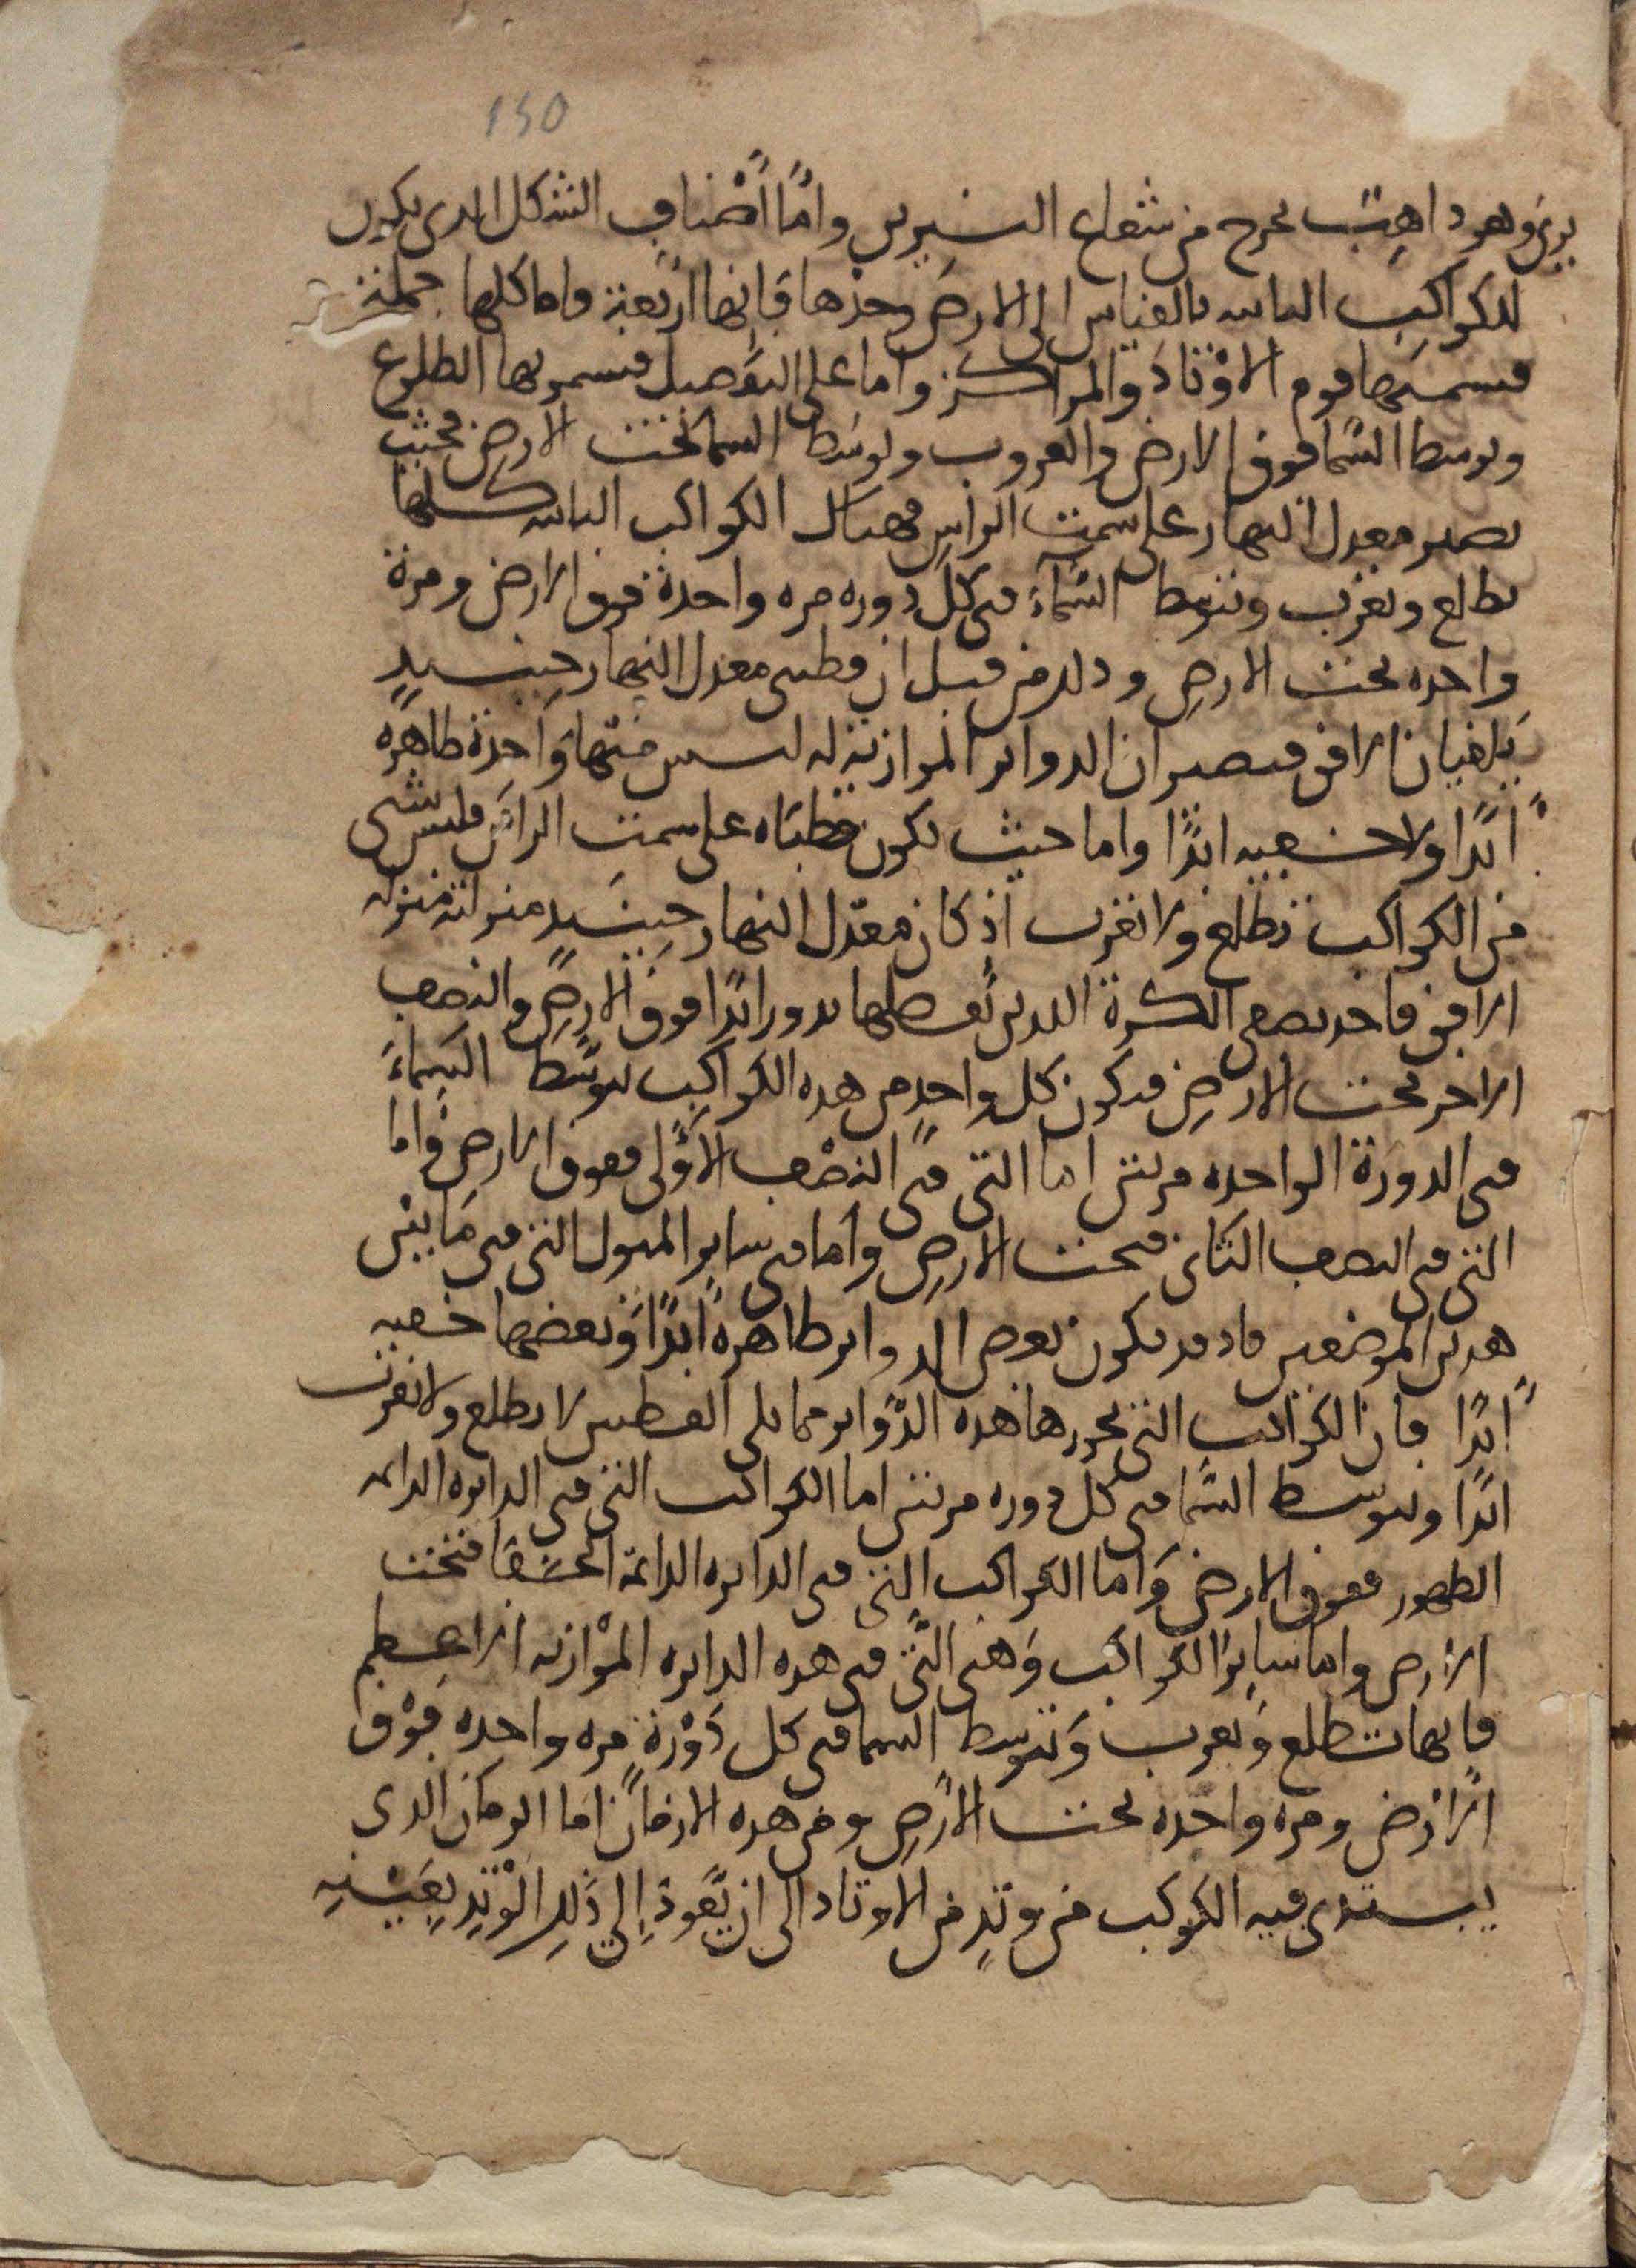 150
يرى وهو ذاهب يخرج من شعاع النيرين واما أصناف الشكل الدى يكون
للكواكب الثابته بالقياس الى الارض وحدها فانها اربعة واما كلها جملة
فيسميها قوم الاوتاد والمراكز واما على التفصيل فيسمونها الطلوع
وتوسط السما فوق الارض والغروب وتوسط السما تحت الارض فحيث
يصير معدل النهار على سمت الراس فهناك الكواكب الثابته كلها
تطلع وتغرب وتتوسط السماء فى كل دوره مره واحدة فوق الارض ومرة
واحده تحت الارض ودلك من قبل ان قطبى معدل النهار حينئيد
يلفيان الافق فيصير ان الدواير الموازية له ليس منها واحدة ظاهره
ابدًا ولا خفيه ابدًا واما حيث يكون قطباه على سمت الراس فليس شى
من الكواكب تطلع ولا تغرب اذ كان معدل النهار حينئيد منزلته منزله
الافق فاحد نصفى الكرة اللدين يفصلها يدور ابدًا فوق الارض والنصف
الاخر تحت الارض فيكون كل واحد من هده الكواكب يتوسط السماء
فى الدورة الواحده مرتين اما التى فى النصف الاولى ففوق الارض واما
التى فى النصف الثانى فتحت الارض واما فى ساير الميول التى فى ما بين
هدين الموضعين فاد قد يكون بعض الدواير ظاهرة ابدًا وبعضها خفيه
ابدًا فان الكواكب التى تحوزها هده الدواير مما يلى القطبين لا تطلع ولا تغرب
ابدًا وتتوسط السما فى كل دوره مرتين اما الكواكب التى فى الدايره الدائمه
الظهور ففوق الارض واما الكواكب التى فى الدايره الدائمة الخفا فتحت
الارض واما ساير الكواكب وهى التى فى هده الدايره الموازيه الاعظم
فانها تطلع وتغرب وتتوسط السما فى كل دَوْرة مره واحده فَوْق
الارض ومره واحده تحت الارض ومن هده الازمان اما الزمان الدى
يبتدى فيه الكوكب من وتدٍ من الاوتاد الى ان يَعُودَ إلى ذَلِك الوَتِدِ بِعَيْنِهِ